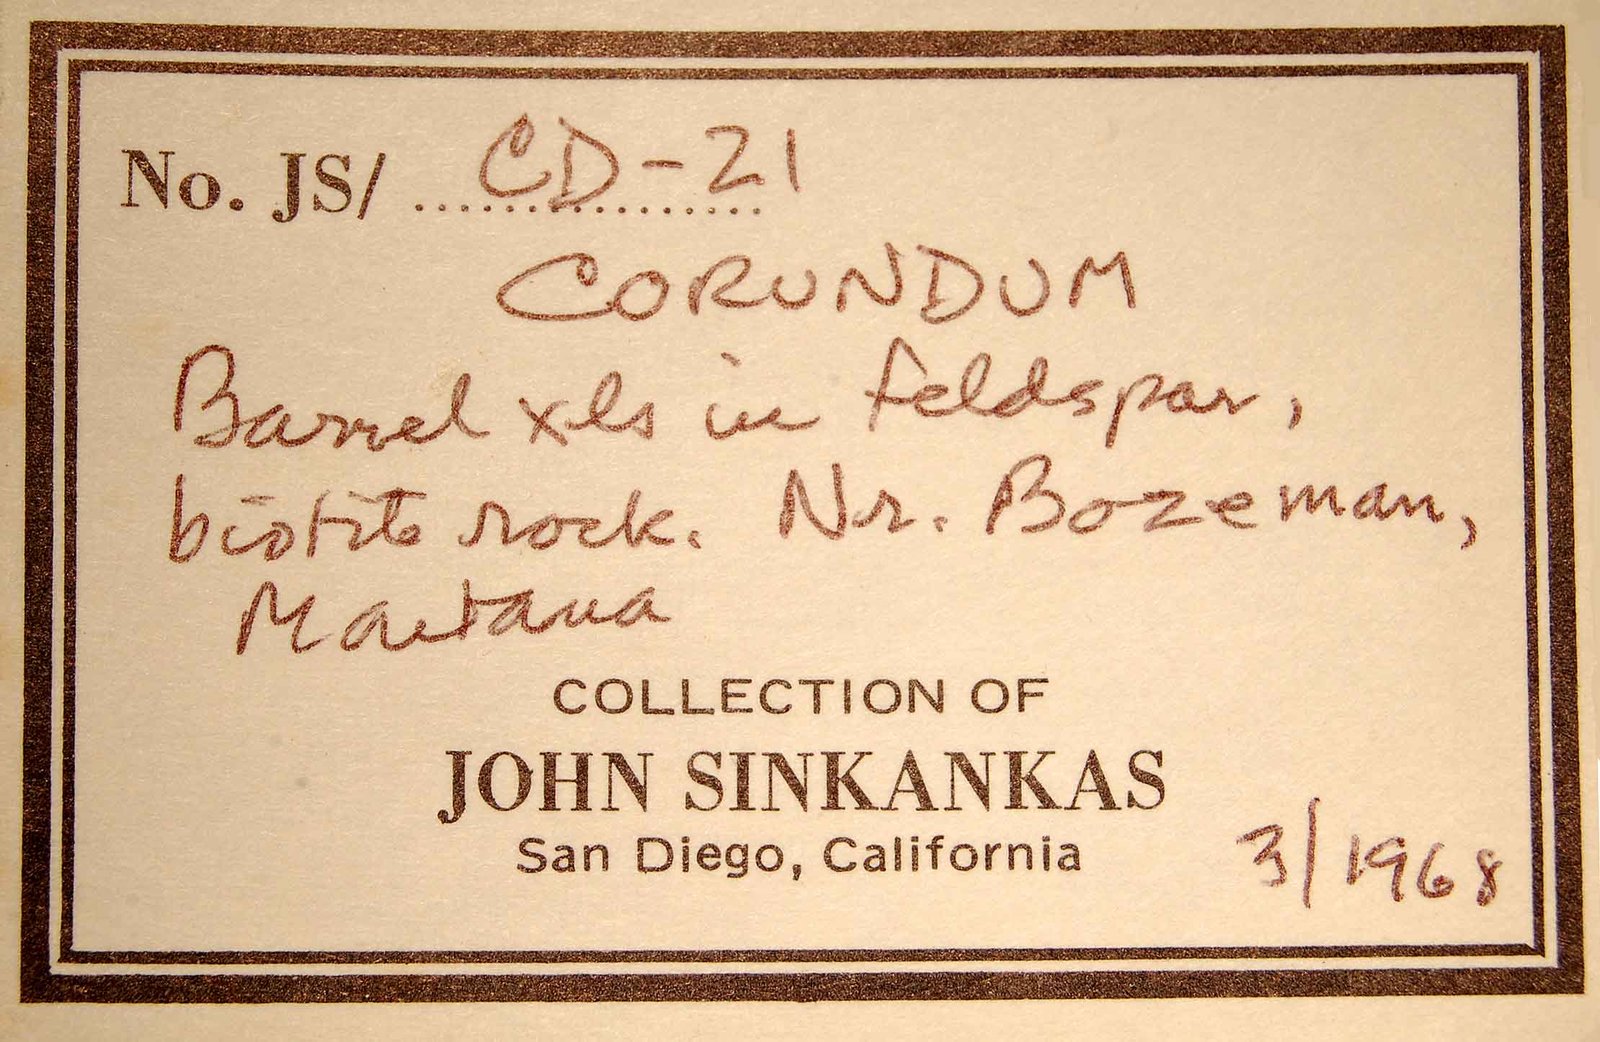 No. JS/ CD-21
CORUNDUM
Barrel xls in feldspar,
biotite rock. Nr. Bozeman,
Montana
COLLECTION OF
JOHN SINKANKAS
San Diego, California
3/1968